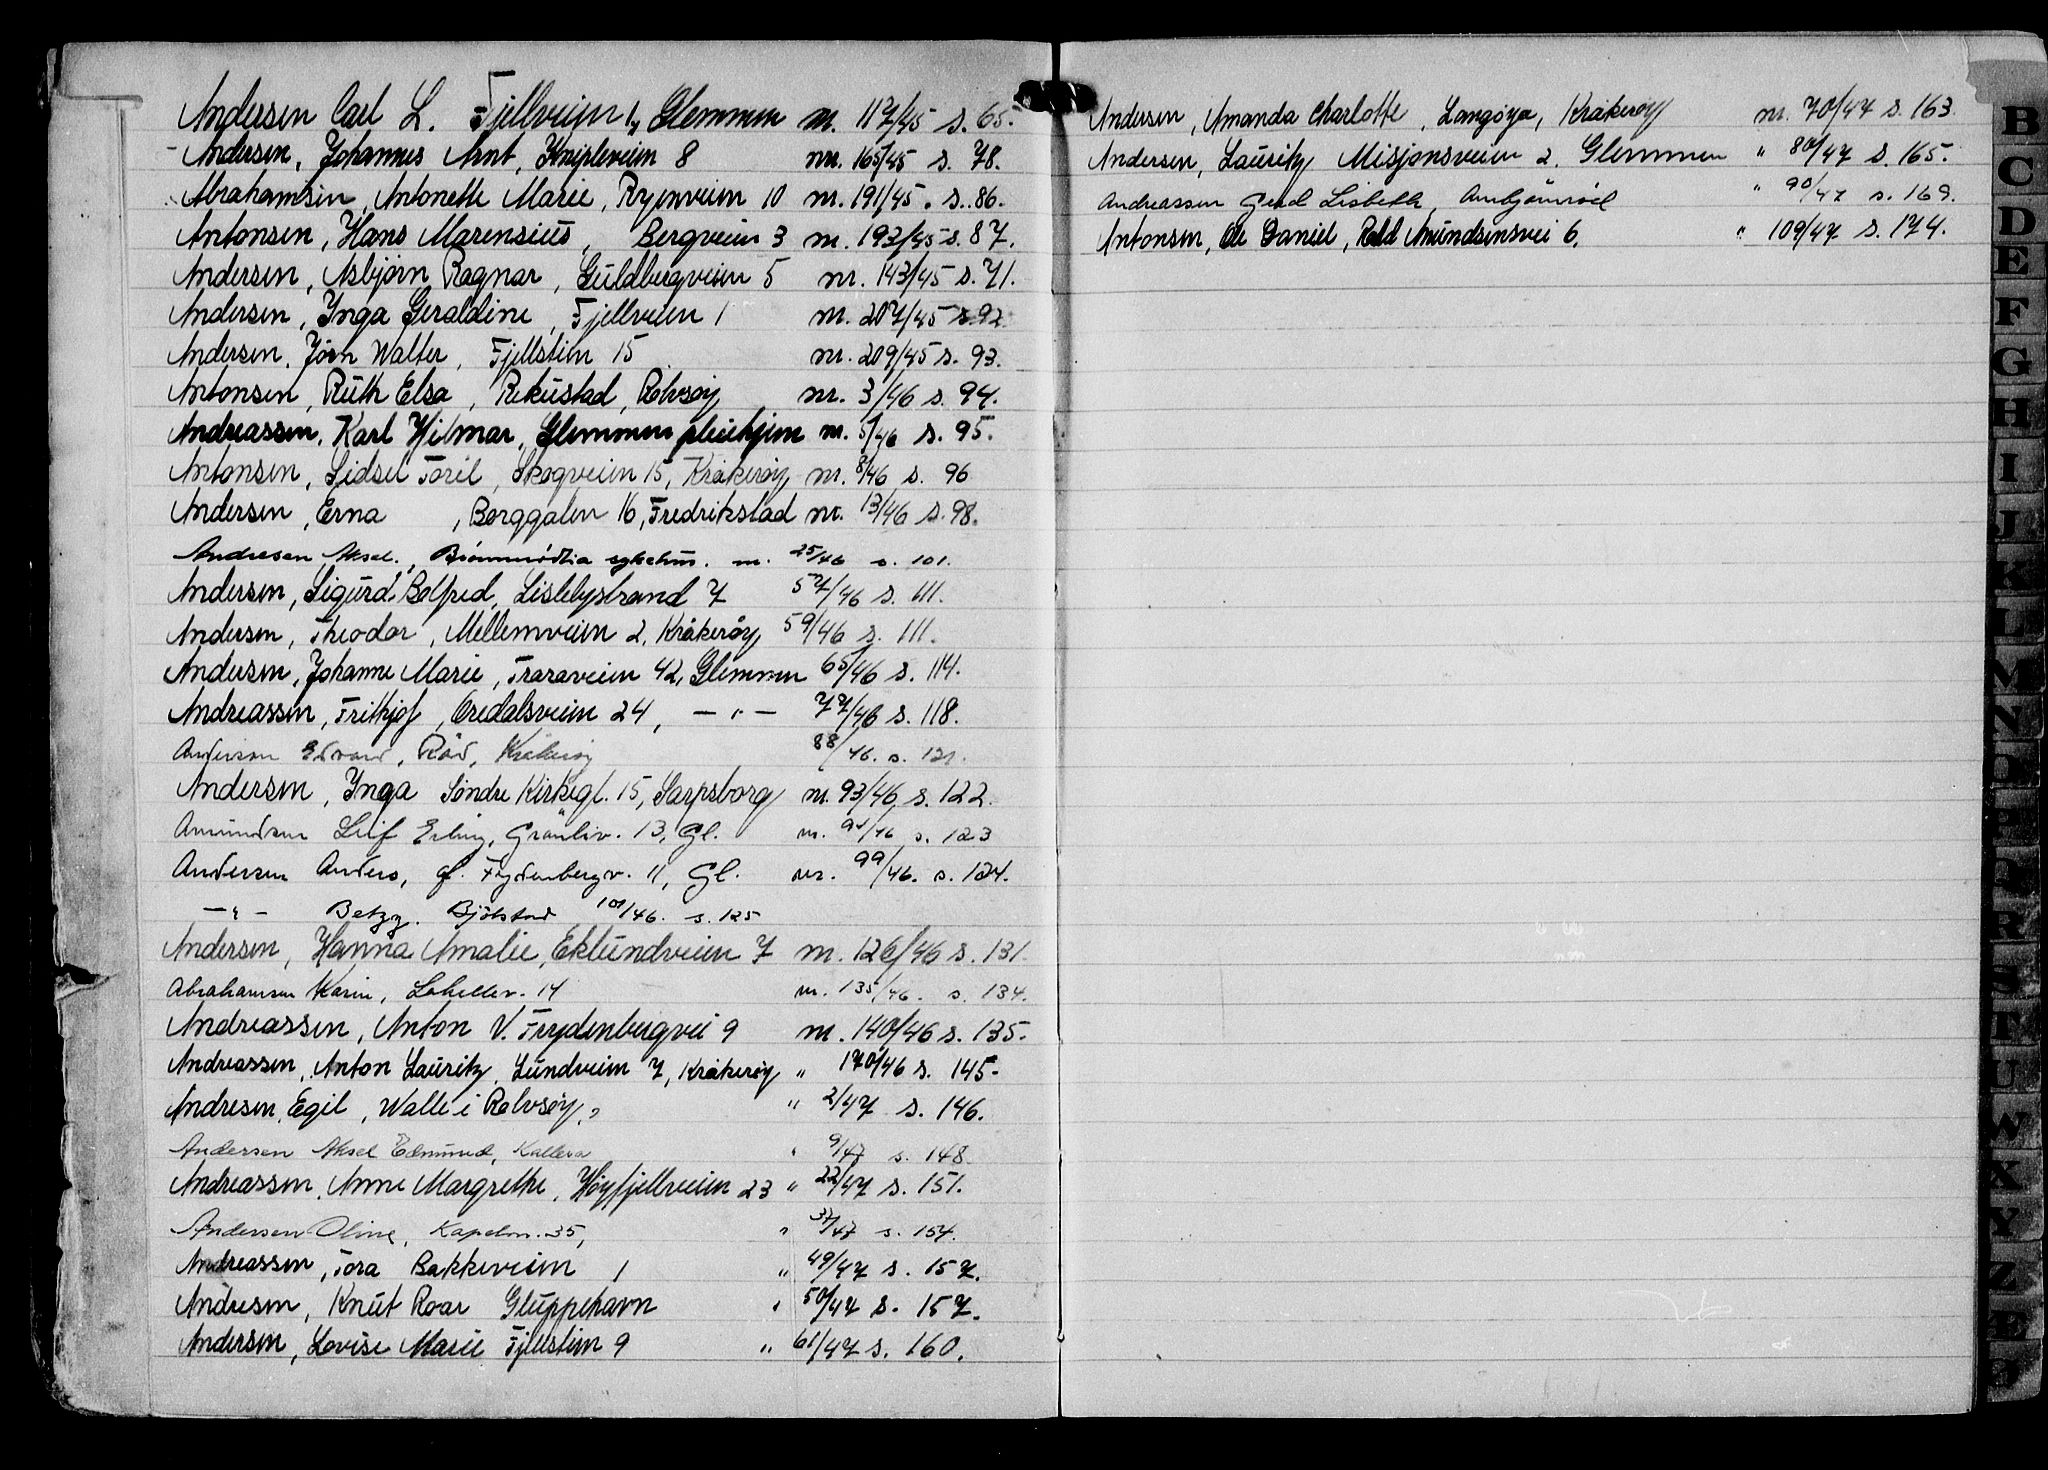 Andersen Carl L. Fjellveien 1, Glemmen nr. 117/45 s. 65.
Andersen, Johannes Arnt, Knipleveien 8 nr. 165/45 s. 78.
Abrahamsen, Antonette Marie, Ryenveien 10 nr. 191/45. s. 86.
Antonsen, Hans Marensius, Bergveien 3 nr. 193/45 s. 87.
Andersen, Asbjørn Ragnar, Guldbergveien 5 nr. 143/45 s. 71.
Andersen, Ynga Geraldine, Fjellveien 1 nr. 207/45 s. 92
Andersen, Jørn Walter, Fjellstien 15 nr. 209/45 s. 93.
Antonsen, Ruth Elsa, Rekustad, Rolvsøy nr. 3/46 s. 94.
Andreassen, Karl Hilmar, Glemmen pleiehjem nr. 5/46 s. 95.
Antonsen, Sidsel Toril, Skogveien 15, Kråkerøy nr. 8/46 s. 96
Andersen, Erna, Borggaten 16, Fredrikstad nr. 13/46 s. 98.
Andresen Aksel., sykehus. nr. 25/46 s. 101.
Andersen, Sigurd Bolfred, Lislebystrand 7 57/46 s. 111.
Andersen, Theodor, Mellemveien 2, Kråkerøy 59/46 s. 111.
Andersen, Johanne Marie, Traraveien 42, Glemmen 65/46 s. 114.
Andreassen, Frithjof, Oredalsveien 24, — " — 77/46 s. 118.
Andersen Edvard, Rød, Kråkerøy 88/46. s. 121.
Andersen, Ynga Søndre Kirkegt. 15, Sarpsborg nr. 93/46, s. 122.
Amundsen Leif Erling, Grønliv. 13, Gl. nr. 94/46 s. 123
Andersen Anders, gl. Frydenbergv. 11, Gl. nr. 99/46. s. 124.
— " — Betzy. Bjølstad 101/46. s. 125
Andersen, Hanna Amalie, Eklundveien 7 nr. 126/46 s. 131.
Abrahamsen Karin, Lahellev. 14 nr. 135/46. s. 134.
Andreassen, Anton V. Frydenbergvei 9 nr. 140/46 s. 135.
Andreassen, Anton Lauritz, Lundveien 7, Kråkerøy " 170/46 s. 145-
Andresen, Egil, Walle i Rolvsøy, " 2/47 s. 146.
Andersen Aksel Edmund, Kallera " 9/47 s. 148.
Andreassen, Anne Margrethe, Høyfjellveien 23 " 22/47 s. 151.
Andersen Oline, Kapelv. 35, " 37/47 s. 154.
Andreassen, Tora Bakkeveien 1 " 49/47 s. 157.
Andresen, Knut Roar Gluppehavn " 50/47 s. 157.
Andersen, Lovise Marie Fjellstien 9 " 61/47 s. 160.
Andersen, Amanda Charlotte, Langøya, Kråkerøy nr. 70/47 s. 163.
Andersen, Lauritz Misjonsveien 2. Glemmen " 80/47 s. 165.
Andreassen Gerd Lisbeth, Ambjørnrød " 90/47 s. 169.
Antonsen, Ole Daniel, Roald Amundsensvei 6. " 109/47 s. 174.
B
C
D
E
F
G
H
I
J
K
L
M
N
O
P
R
S
T
U
W
X
Y
Z
Æ
Ø